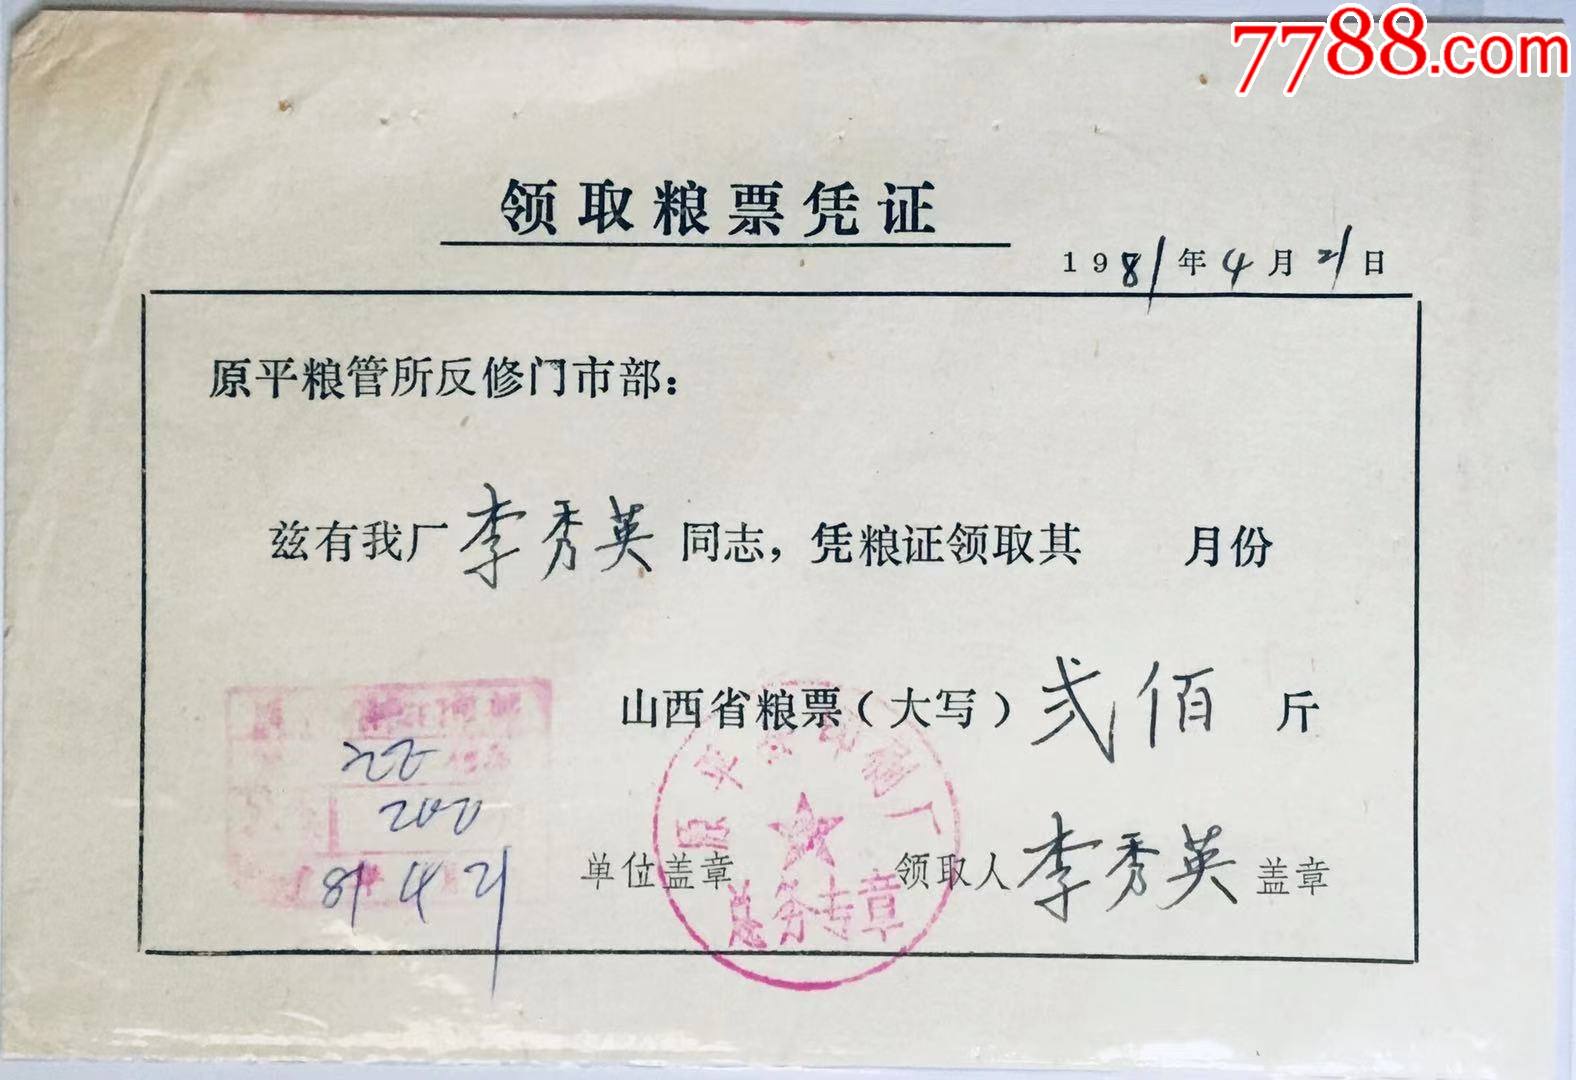 7788.com
领取粮票凭证
1981年4月21日
原平粮管所反修门市部：
兹有我厂李秀英同志，凭粮证领取其 月份
山西省粮票（大写）弍佰斤
200
单位盖章 领取人李秀英盖章
81 4 21
总务专章